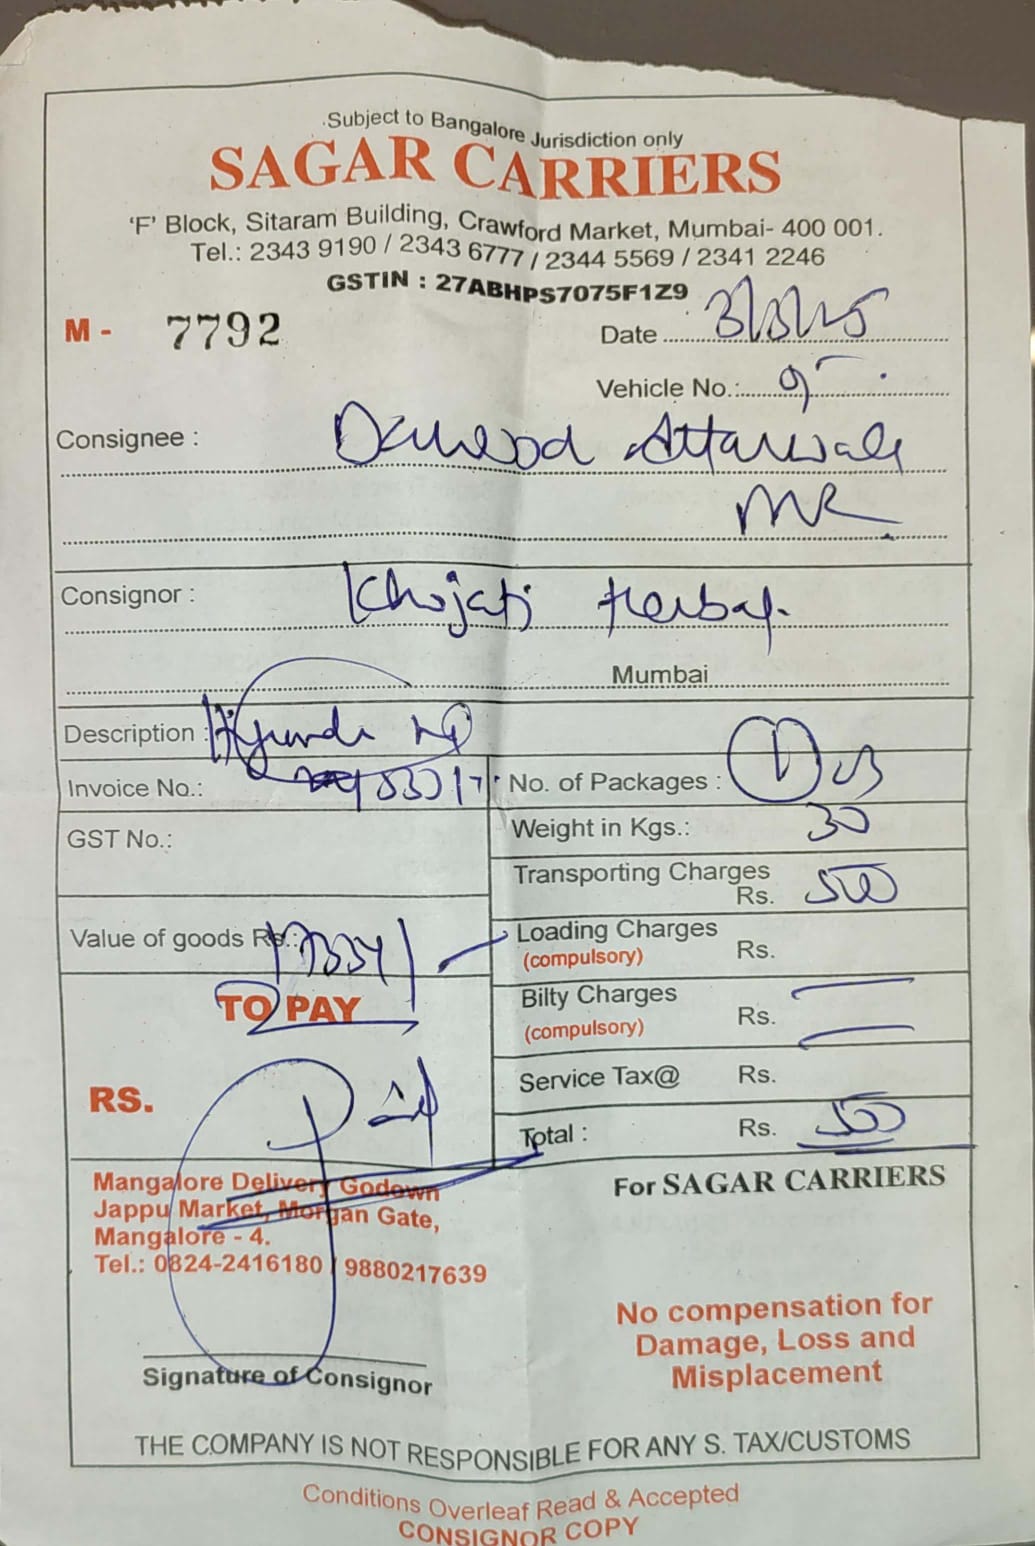 Subject to Bangalore Jurisdiction only
SAGAR CARRIERS
'F' Block, Sitaram Building, Crawford Market, Mumbai- 400 001.
Tel.: 2343 9190 / 2343 6777 / 2344 5569 / 2341 2246
GSTIN : 27ABHPS7075F1Z9
M - 7792
Date
Vehicle No.:
Consignee : Dawood Attarwala
Consignor : Khojati Herbal
Mumbai
Description :
Invoice No.:
No. of Packages : 1
GST No.:
Weight in Kgs.: 30
Transporting Charges
Rs. 500
Value of goods Rs.:
Loading Charges
(compulsory) Rs.
TO PAY
Bilty Charges
(compulsory) Rs.
RS.
Service Tax@ Rs.
Total : Rs. 500
Mangalore Delivery Godown
Jappu Market, Morgan Gate,
Mangalore - 4.
Tel.: 0824-2416180 / 9880217639
For SAGAR CARRIERS
No compensation for
Damage, Loss and
Misplacement
Signature of Consignor
THE COMPANY IS NOT RESPONSIBLE FOR ANY S. TAX/CUSTOMS
Conditions Overleaf Read & Accepted
CONSIGNOR COPY